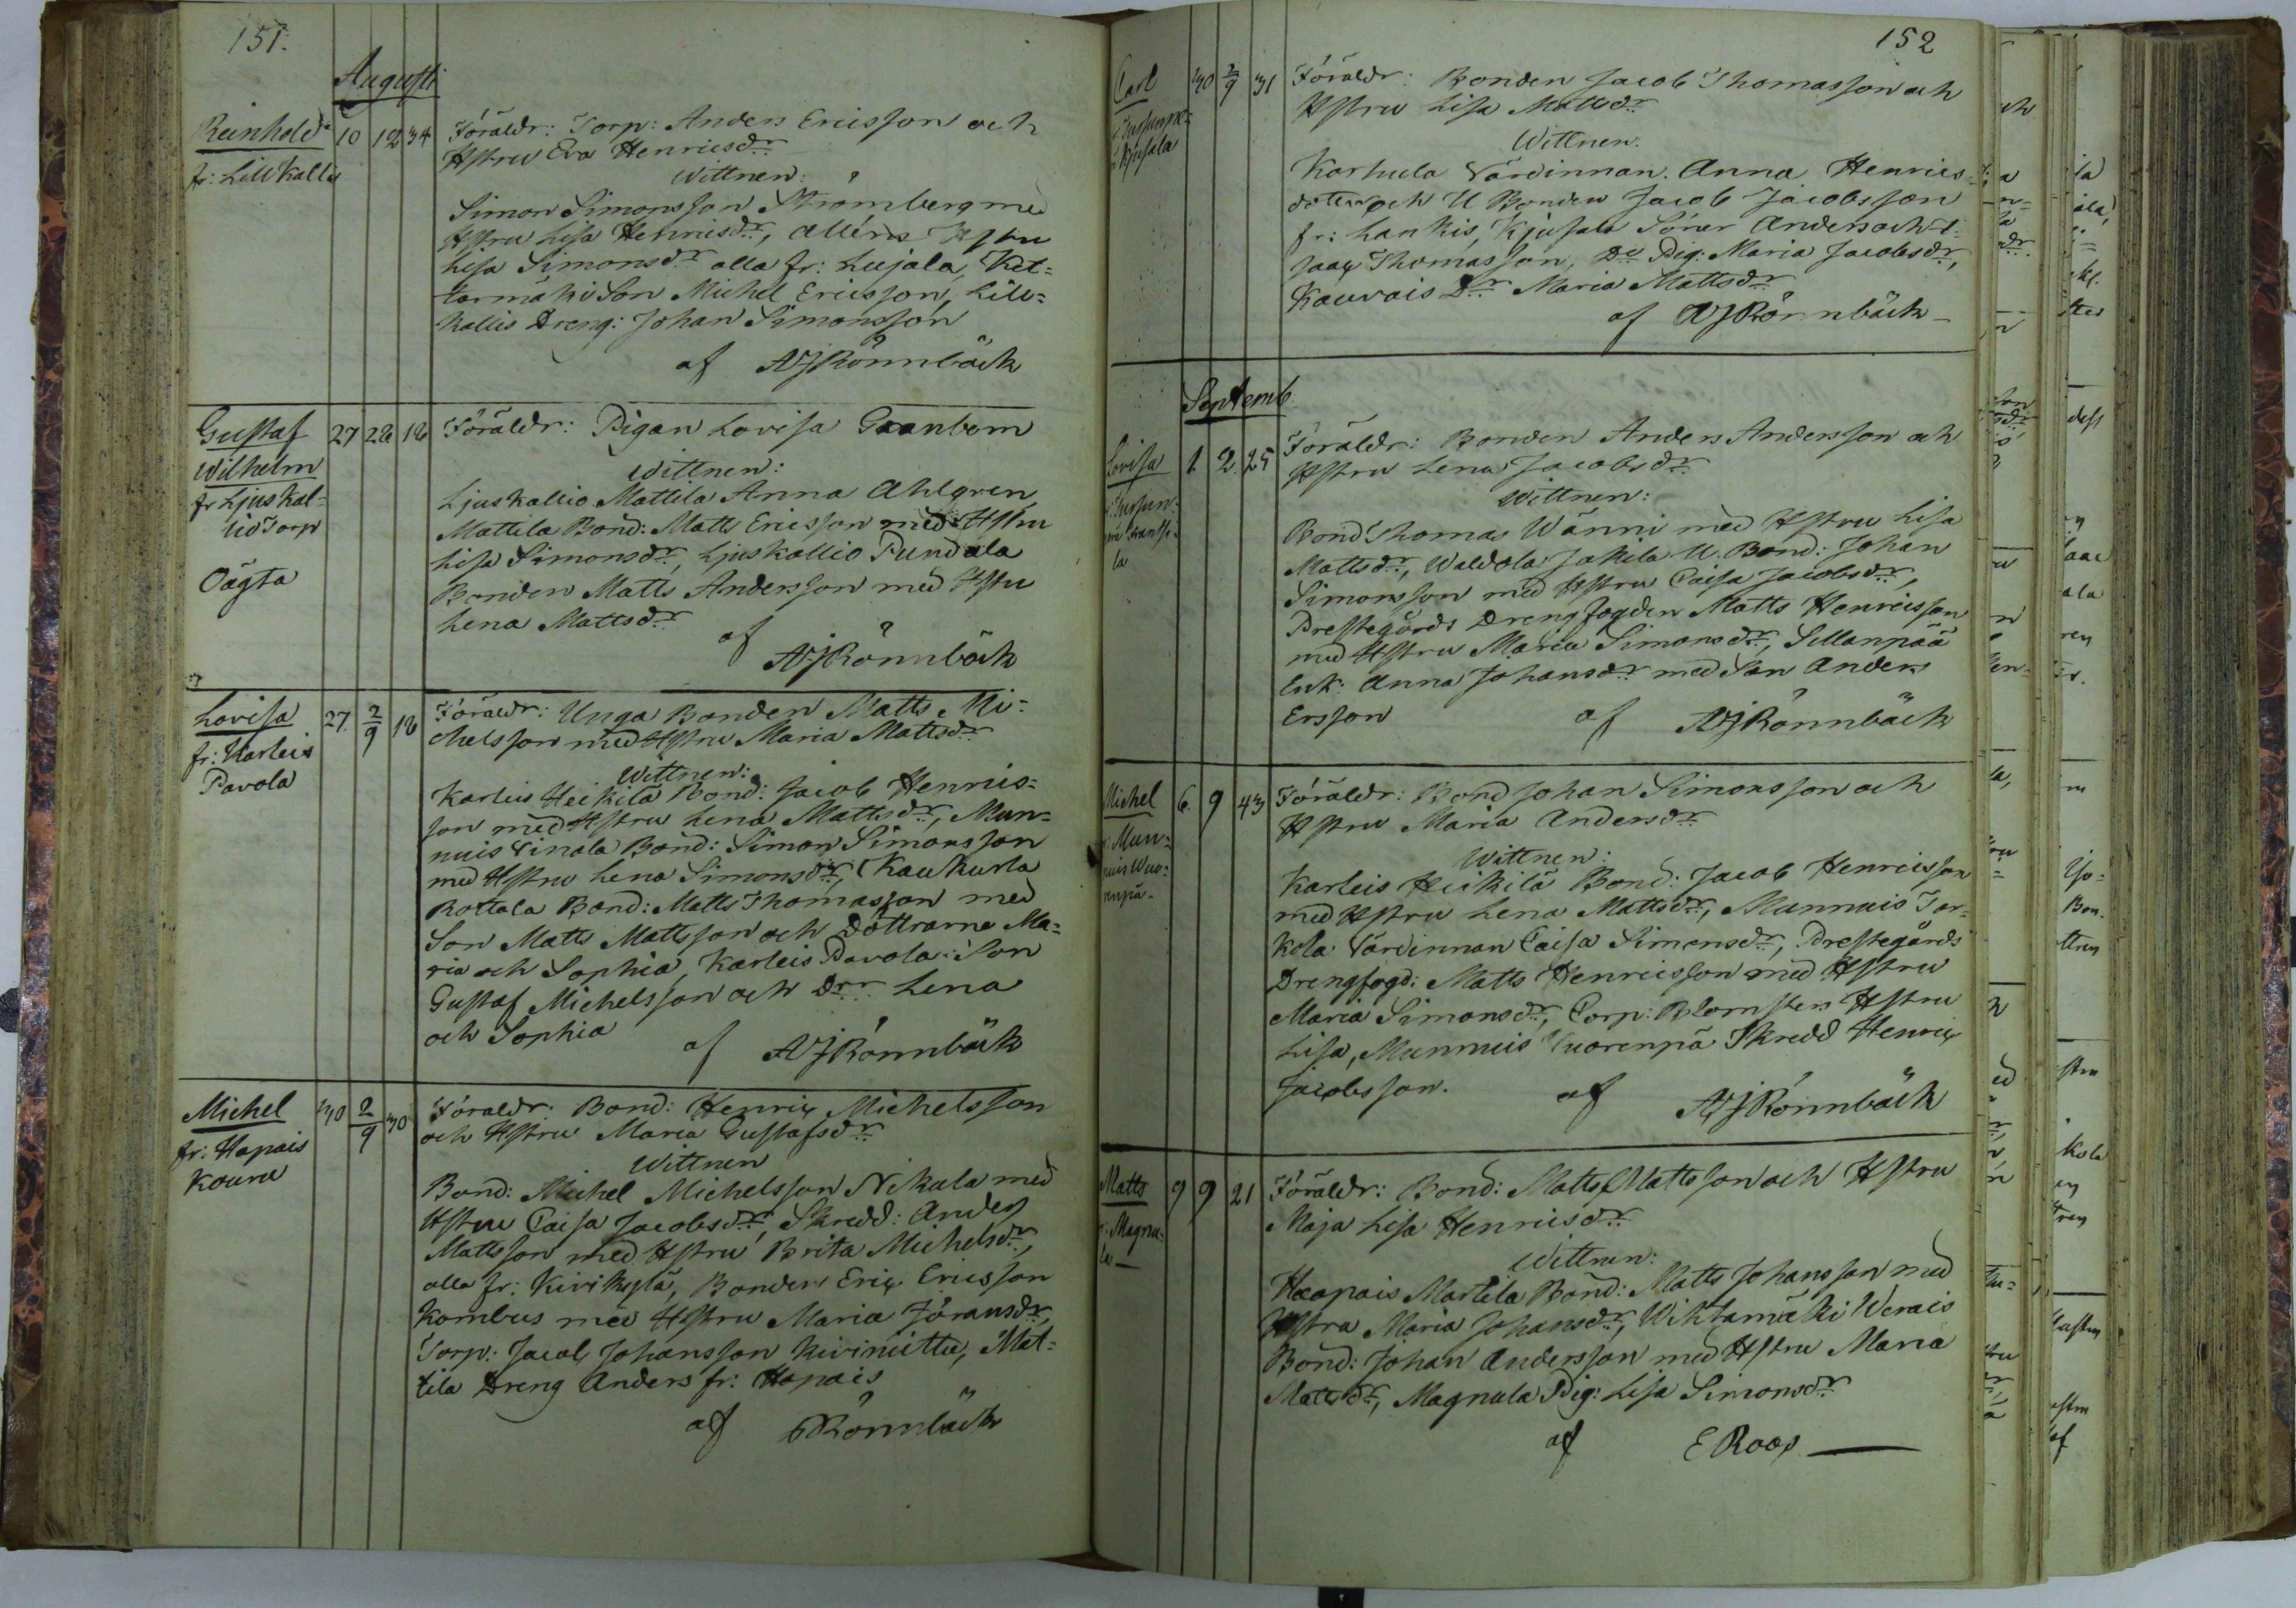 151.
Augusti
Reinhold 10 12 34 Föräldr: Torp: Anders Ericsson och
fr: Lillkallis Hstru Eva Henricsdr
Wittnen:
Simon Simonsson Strömberg med
Hstru Lisa Henricsdr, Hstru
Lisa Simonsdr alla fr: Lujala, Ket=
tarmäki Son Michel Ericsson, Lill=
kallis Dreng: Johan Simonsson
af AJRönnbäck
Gustaf 27 28 18 Föräldr: Pigan Lovisa Granbom
Wilhelm
Wittnen:
fr Ljuskal= Ljuskallio Mattila Anna Ahlgren
lio Torp Mattila Bond: Matts Ericsson med Hstru
Lisa Simonsdr, Ljuskallio Pundala
Oägta Bonden Matts Andersson med Hstru
Lena Mattsdr
af AJRönnbäck
Lovisa 27 2/9 18 Föräldr: Unga Bonden Matts Mi=
fr: Karleis chelsson med Hstru Maria Mattsdr
Pavola
Wittnen:
Karleis Heikilä Bond: Jacob Henrics=
son med Hstru Lena Mattsdr, Mun=
nuis Vinala Bond: Simon Simonsson
med Hstru Lena Simonsdr, Kaukurla
Rottola Bond: Matts Thomasson med
Son Matts Mattsson och Döttrarne Ma=
ria och Sophia, Karleis Pavola Son
Gustaf Michelsson och Drr Lena
och Sophia af AJRönnbäck
Michel 30 2/9 30 Föräldr: Bond: Henric Michelsson
fr: Hapais och Hstru Maria Gustafsdr
Koura
Wittnen
Bond: Michel Michelsson Nikula med
Hstru Caisa Jacobsdr, Skredd: Anders
Mattsson med Hstru Brita Michelsdr,
alla fr: Kivikylä, Bonden Eric Ericsson
Kombus med Hstru Maria Göransdr,
Torp: Jacob Johansson Kiriniittu, Mat=
tila Dreng Anders fr: Hapais
af Rönnbäck
152
Carl 30 2/9 31 Föräldr: Bonden Jacob Thomasson och
Hstru Lisa Mattsdr
Kjusala
Wittnen:
Karhula Värdinnan Anna Henrics=
dotter och U Bonden Jacob Jacobsson
fr: Lankis, Kjusala Söner Anders och I=
saac Thomasson, Do Pig: Maria Jacobsdr,
Kauvais Dr Maria Mattsdr
af AJRönnbäck
Septemb
Lovisa 1 2 25 Föräldr: Bonden Anders Andersson och
Hstru Lena Jacobsdr
Wittnen:
Bond Thomas Wänni med Hstru Lisa
Mattsdr, Waldola Jakila U. Bond: Johan
Simonsson med Hstru Caisa Jacobsdr,
Prestegårds Drengfogden Matts Henricsson
med Hstru Maria Simonsdr, Sillanpää
Enk: Anna Johansdr med Son Anders
Ersson af AJRönnbäck
Michel 6 9 43 Föräldr: Bond Johan Simonsson och
Mun= Hstru Maria Andersdr
nuis Wuo=
renpä
Wittnen:
Karleis Heikilä Bond: Jacob Henricsson
med Hstru Lena Mattsdr, Munnuis Tor=
kola Värdinnan Caisa Simonsdr, Prestegårds
Drengfogd: Matts Henricsson med Hstru
Maria Simonsdr, Corp: Blomsters Hstru
Lisa, Munnuis Wuorenpä Skredd Henric
Jacobsson. af AJRönnbäck
Matts 9 9 21 Föräldr: Bond: Matts Mattsson och Hstru
fr: Magnu= Maja Lisa Henricsdr
la
Wittnen:
Haapais Martila Bond: Matts Johansson med
Hstru Maria Johansdr, Wihtamäki Werais
Bond: Johan Andersson med Hstru Maria
Mattsdr, Magnula Pig: Lisa Simonsdr
af E Roos